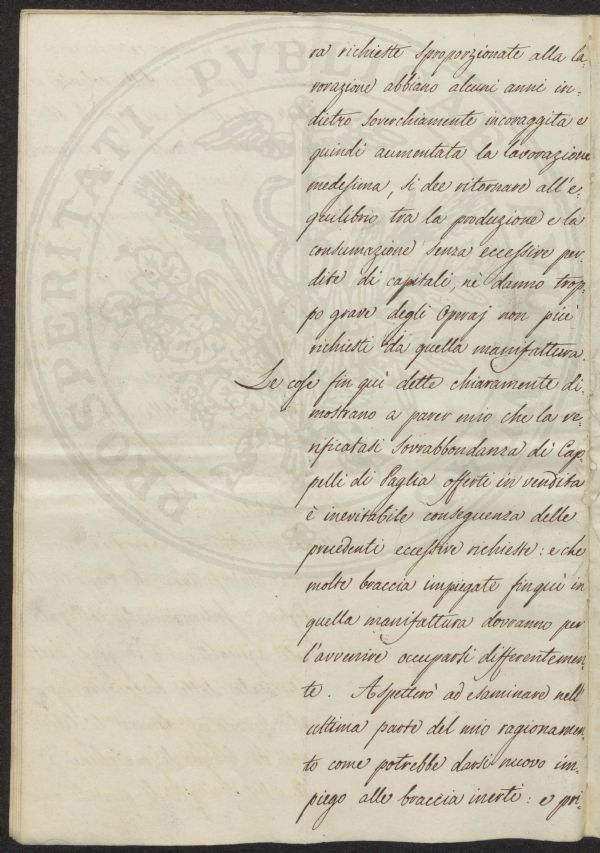 ra richieste sproporzionate alla la-
vorazione abbiano alcuni anni in-
dietro soverchiamente incoraggita e
quindi aumentata la lavorazione
medesima, si dee ritornare all'e-
quilibrio tra la produzione e la
consumazione senza eccessive per-
dite di capitali, nè danno trop-
po grave degli Operaj non più
richiesti da quella manifattura.
Le cose fin quì dette chiaramente di-
mostrano a parer mio che la ve-
rificatasi sovrabbondanza di Cap-
pelli di Paglia offerti in vendita
è inevitabile conseguenza delle
precedenti eccessive richieste: e che
molte braccia impiegate fin quì in
quella manifattura dovranno per
l'avvenire occuparsi differentemen-
te. Aspetterò ad esaminare nell'
ultima parte del mio ragionamen-
to come potrebbe darsi nuovo im-
piego alle braccia inerti: e pri-
PROSPERITATI PVBLICAE